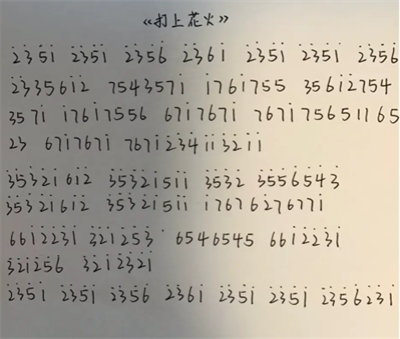 《打上花火》
2̇3̇5̇1̇ 2̇3̇5̇1̇ 2̇3̇5̇6̇ 2̇3̇6̇1̇ 2̇3̇5̇1̇ 2̇3̇5̇1̇ 2̇3̇5̇6̇
2̇3̇3561̇2̇ 7543571̇ 1̇761̇755 3561̇2̇754
3571̇ 1̇761̇7556 671̇7671̇ 7671̇75651165
23 671̇7671̇ 7671̇2̇3̇4̇1̇1̇3̇2̇1̇1̇
3̇5̇3̇2̇1̇61̇2̇ 3̇5̇3̇2̇1̇51̇1̇ 3̇5̇3̇2̇ 3̇5̇5̇6̇5̇4̇3̇
3̇5̇3̇2̇1̇61̇2̇ 3̇5̇3̇2̇1̇51̇1̇ 1̇76762̇7671̇
661̇2̇2̇3̇1̇ 3̇2̇1̇2̇5̇3̇ 6546545 661̇2̇2̇3̇1̇
3̇2̇1̇2̇56 3̇2̇1̇2̇3̇2̇1̇
2̇3̇5̇1̇ 2̇3̇5̇1̇ 2̇3̇5̇6̇ 2̇3̇6̇1̇ 2̇3̇5̇1̇ 2̇3̇5̇1̇ 2̇3̇5̇6̇2̇3̇1̇